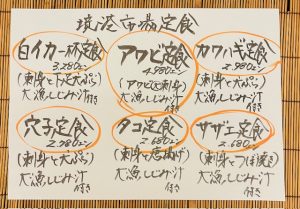 境港市場定食
白イカ一杯定食
3.280エン
(刺身と下足天ぷら)
大漁しじみ汁
付き
アワビ定食
4.980エン
(アワビと刺身)
大漁しじみ汁
付き
カワハギ定食
2.980エン
(刺身と天ぷら)
大漁しじみ汁
付き
穴子定食
2.980エン
(刺身と天ぷら)
大漁しじみ汁
付き
タコ定食
2.680エン
(刺身と唐揚げ)
大漁しじみ汁
付き
サザエ定食
2.680エン
(刺身とつぼ焼き)
大漁しじみ汁
付き